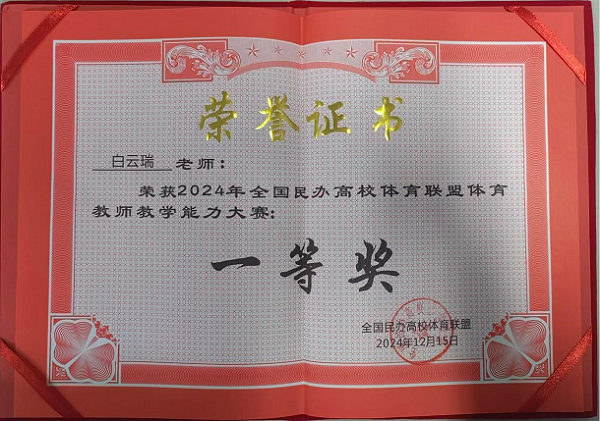 荣誉证书
白云瑞 老师：
荣获2024年全国民办高校体育联盟体育
教师教学能力大赛：
一等奖
全国民办高校体育联盟
2024年12月15日